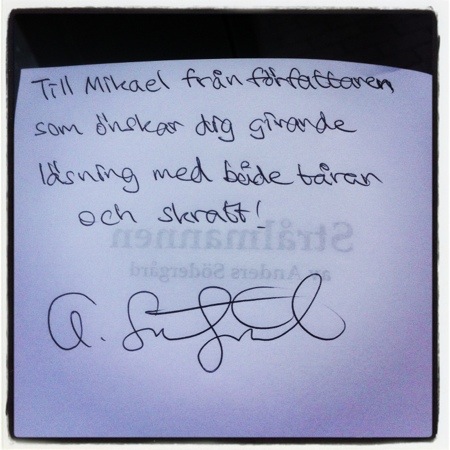 Till Mikael från författaren
som önskar dig givande
läsning med både tåran
och skratt!
Strålmannen
av Anders Södergård